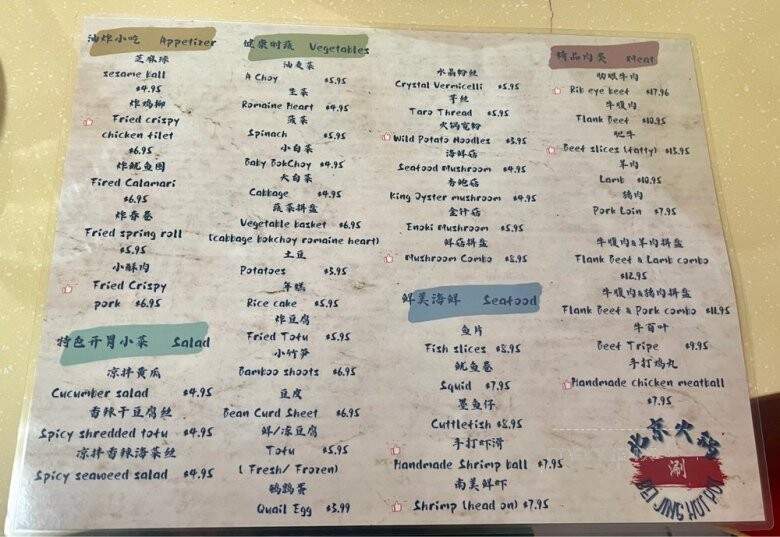 油炸小吃 Appetizer
芝麻球
sesame ball
$4.95
炸鸡柳
Fried crispy
chicken filet
$6.95
炸鱿鱼圈
Fired Calamari
$6.95
炸春卷
Fried spring roll
$5.95
小酥肉
Fried Crispy
pork $6.95
特色开胃小菜 Salad
凉拌黄瓜
Cucumber salad $4.95
香辣干豆腐丝
Spicy shredded tofu $4.95
凉拌香辣海菜丝
Spicy seaweed salad $4.95
健康时蔬 Vegetables
油麦菜
A Choy $5.95
生菜
Romaine Heart $4.95
菠菜
Spinach $5.95
小白菜
Baby BokChoy $4.95
大白菜
Cabbage $4.95
蔬菜拼盘
Vegetable basket $6.95
(cabbage bokchoy romaine heart)
土豆
Potatoes $3.95
年糕
Rice cake $5.95
炸豆腐
Fried Tofu $5.95
小竹笋
Bamboo shoots $6.95
豆皮
Bean Curd Sheet $6.95
鲜/冻豆腐
Tofu $5.95
( Fresh/ Frozen)
鹌鹑蛋
Quail Egg $3.99
水晶粉丝
Crystal Vermicelli $5.95
芋丝
Taro Thread $5.95
火锅宽粉
Wild Potato Noodles $3.95
海鲜菇
Seafood Mushroom $4.95
杏鲍菇
King Oyster mushroom $4.95
金针菇
Enoki Mushroom $5.95
鲜菇拼盘
Mushroom Combo $8.95
鲜美海鲜 Seafood
鱼片
Fish slices $8.95
鱿鱼卷
Squid $7.95
墨鱼仔
Cuttlefish $8.95
手打虾滑
Handmade Shrimp ball $7.95
南美鲜虾
Shrimp (head on) $7.95
精品肉类 Meat
肋眼牛肉
Rib eye beef $17.96
牛腹肉
Flank Beef $10.95
肥牛
Beef slices (fatty) $13.95
羊肉
Lamb $10.95
猪肉
Pork Loin $7.95
牛腹肉&羊肉拼盘
Flank Beef & Lamb combo
$12.95
牛腹肉&猪肉拼盘
Flank Beef & Pork combo $11.95
牛百叶
Beef Tripe $9.95
手打鸡丸
Handmade chicken meatball
$7.95
北京火锅
涮
BEI JING HOT POT